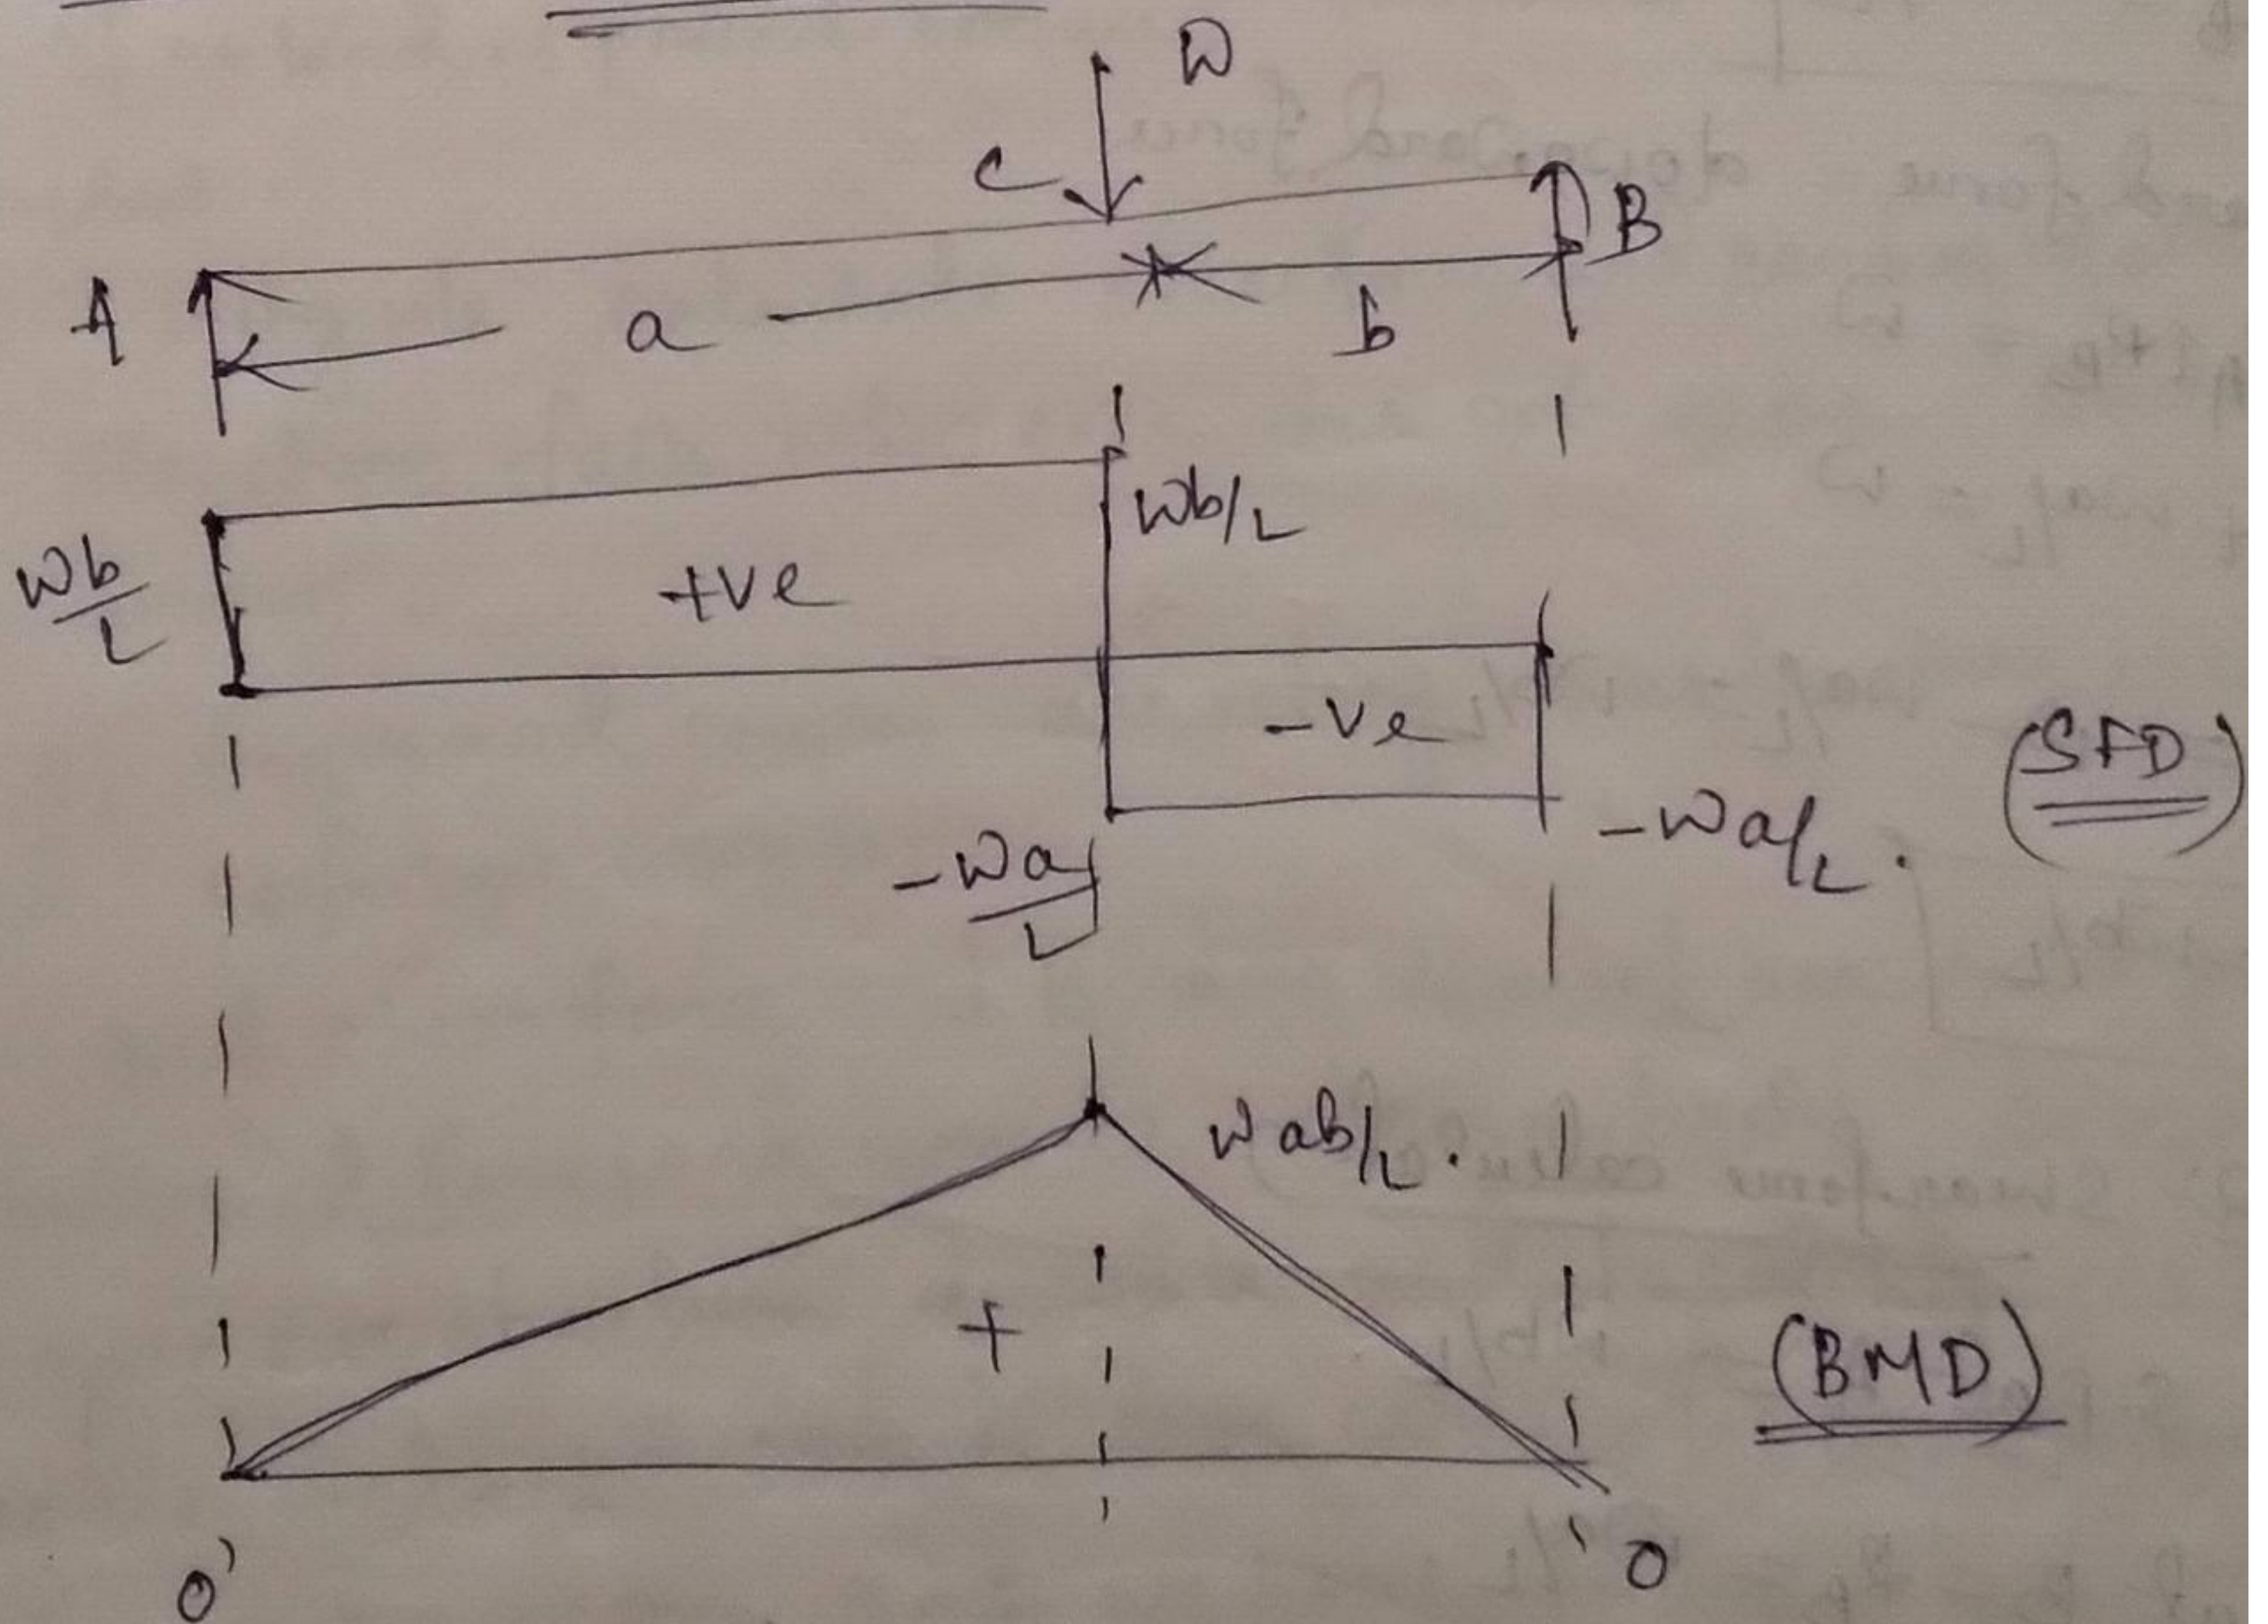 W
C
A
B
a
b
Wb/L
Wb/L
+ve
-ve
(SFD)
-Wa/L
-Wa/L.
Wab/L.
+
(BMD)
0
0